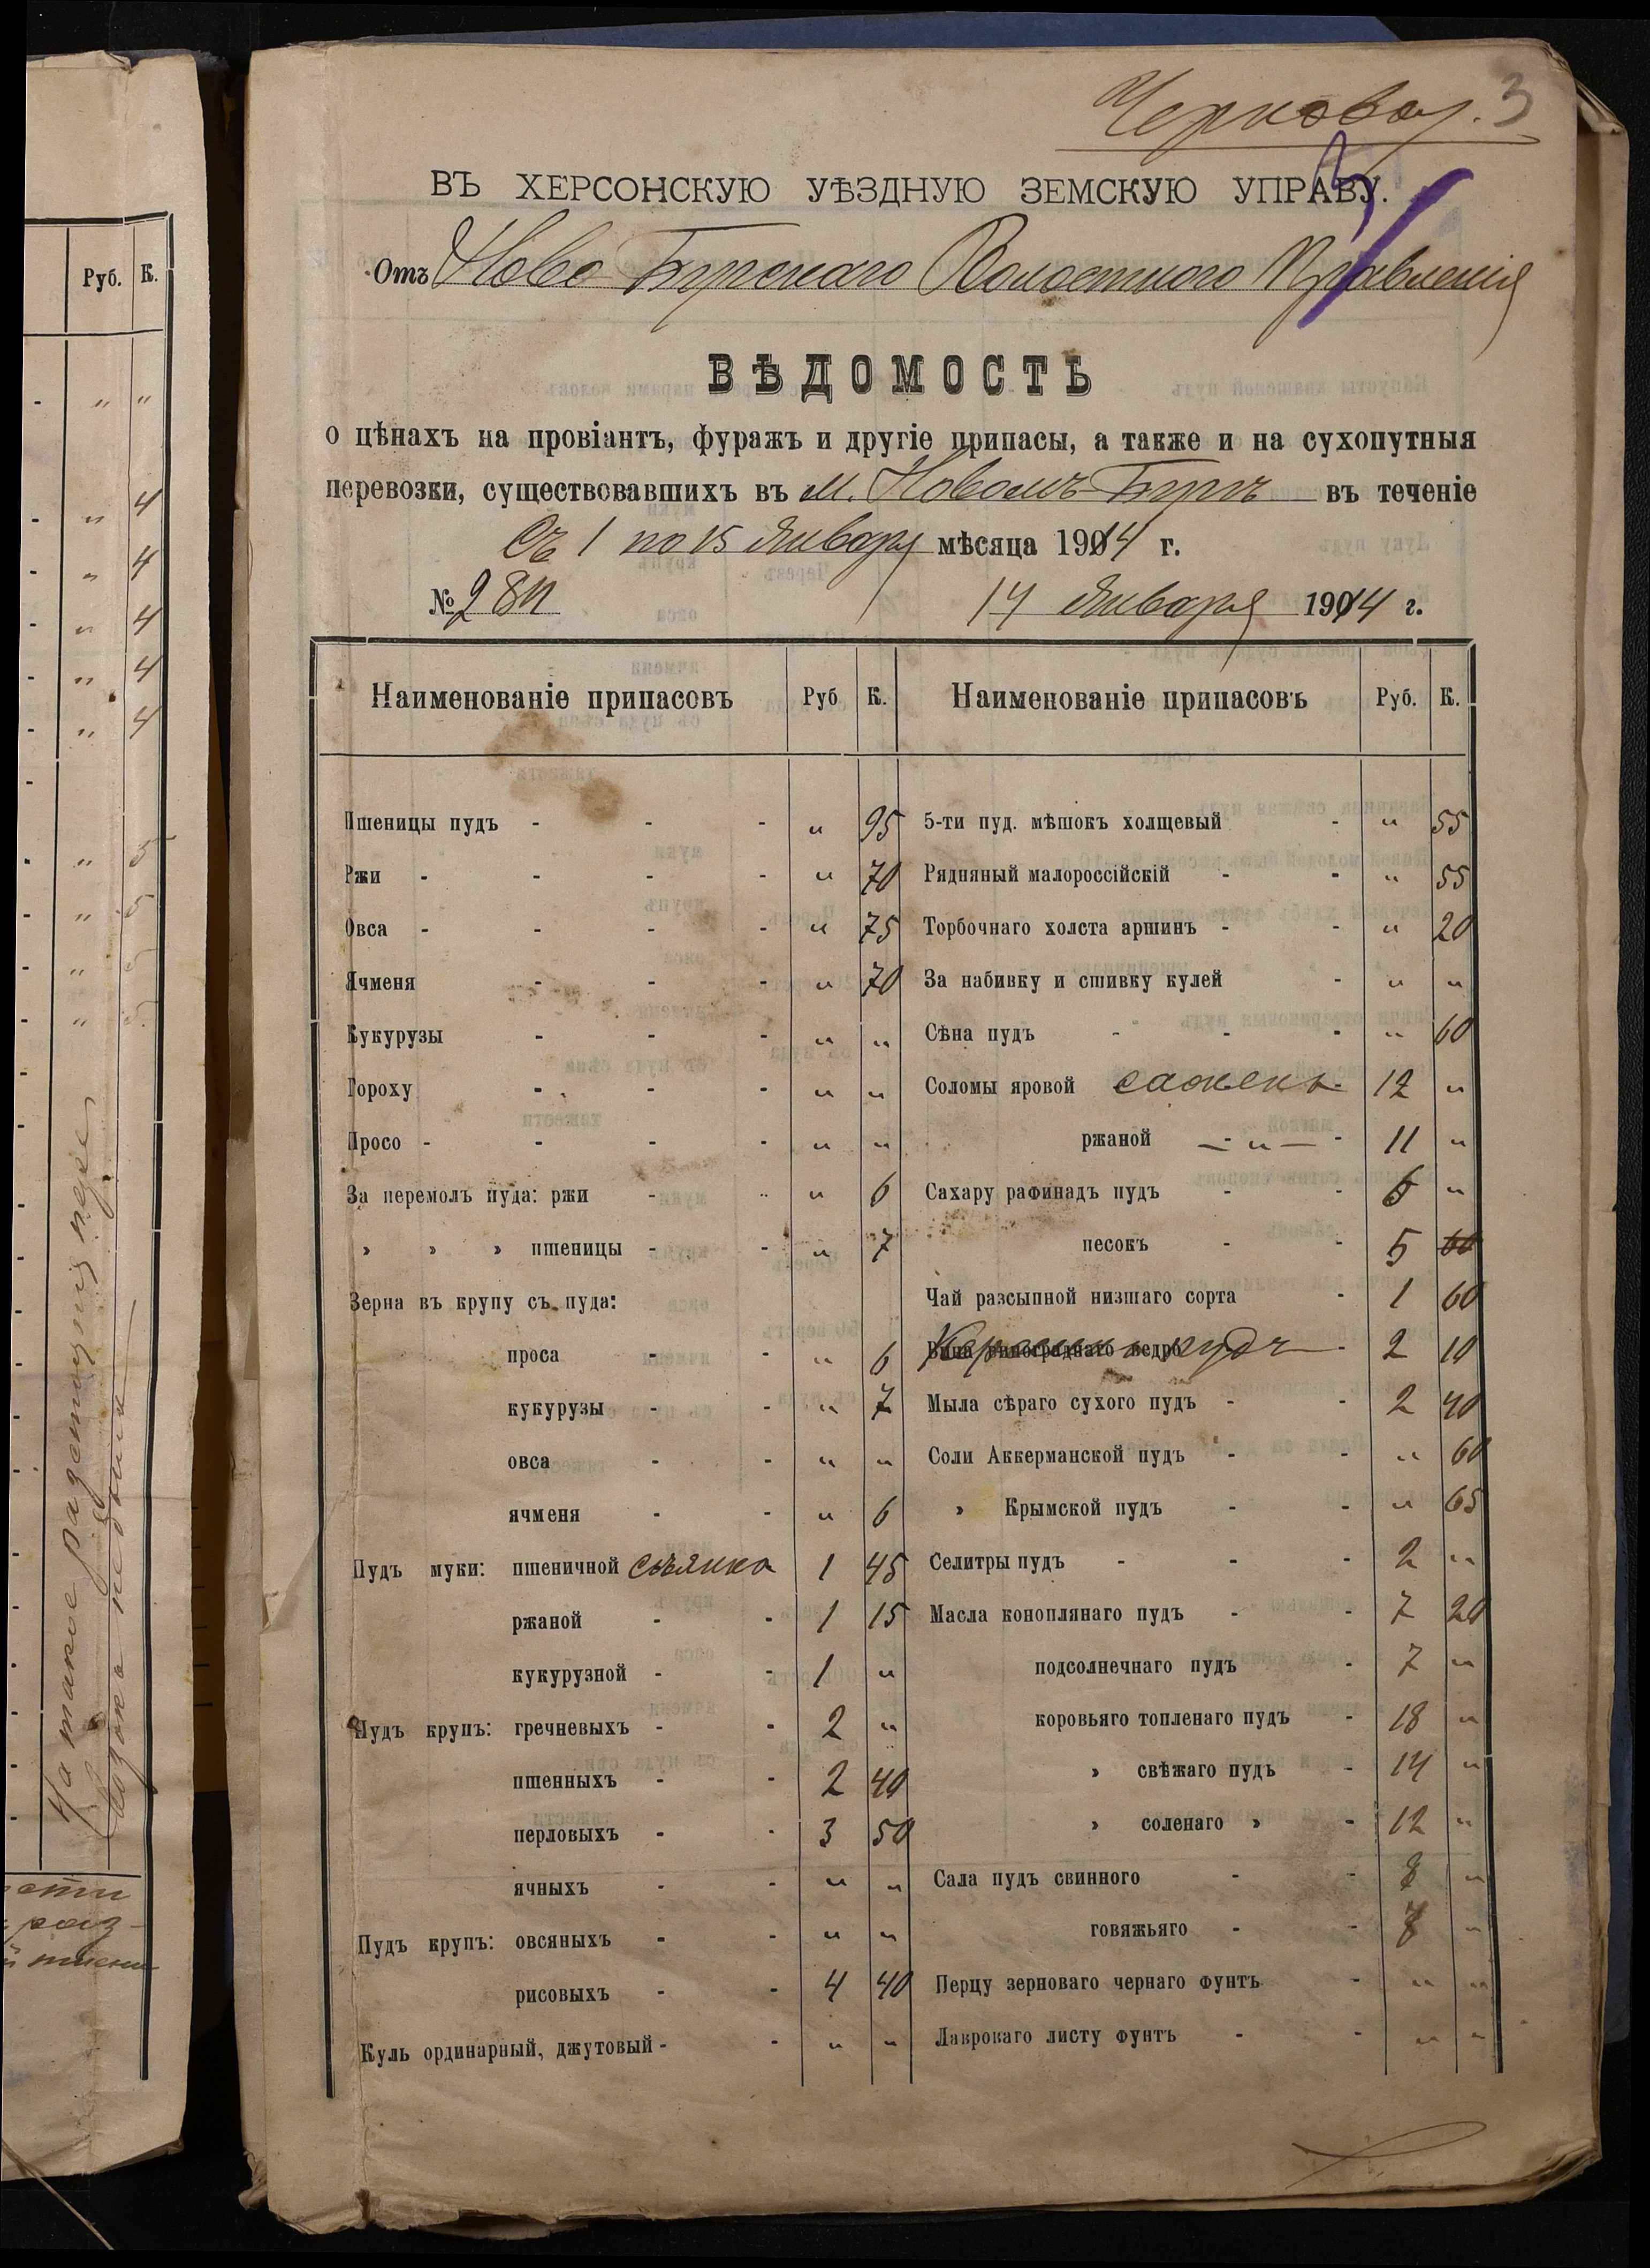 Черновая. 3
ВЪ ХЕРСОНСКУЮ УѢЗДНУЮ ЗЕМСКУЮ УПРАВУ.
Отъ Ново Бугскаго Волостного Правленія
ВѢДОМОСТЬ
о цѣнахъ на провіантъ, фуражъ и другіе припасы, а также и на сухопутныя
перевозки, существовавшихъ въ м. Новомъ-Бугѣ въ теченіе
Съ 1 по 15 Января мѣсяца 1914 г.
№ 280
14 Января 1914 г.
Наименованіе припасовъ Руб К. Наименованіе припасовъ Руб. К.
Пшеницы пудъ - - - " 95 5-ти пуд. мѣшокъ холщевый - " 55
Ржи - - - - " 70 Рядняный малороссійскій - - " 55
Овса - - - - " 75 Торбочнаго холста аршинъ - - " 20
Ячменя - - - " 70 За набивку и сшивку кулей - " "
Кукурузы - - - " " Сѣна пудъ - - - " 60
Гороху - - - " " Соломы яровой сажень - 12 "
Просо - - - - " " ржаной — " — - 11 "
За перемолъ пуда: ржи - - " 6 Сахару рафинадъ пудъ - - 6 "
» » » пшеницы - - " 7 песокъ - - 5 60
Зерна въ крупу съ пуда: Чай разсыпной низшаго сорта - 1 60
проса - - " 6 Вина винограднаго ведро Керосина пудъ - 2 10
кукурузы - - " 7 Мыла сѣраго сухого пудъ - - 2 40
овса - - " " Соли Аккерманской пудъ - - " 60
ячменя - - " 6 » Крымской пудъ - - " 65
Пудъ муки: пшеничной сѣянка 1 45 Селитры пудъ - - - 2 "
ржаной - - 1 15 Масла коноплянаго пудъ - - 7 20
кукурузной - - 1 " подсолнечнаго пудъ - 7 "
Пудъ крупъ: гречневыхъ - - 2 " коровьяго топленаго пудъ - 18 "
пшенныхъ - - 2 40 » свѣжаго пудъ - 14 "
перловыхъ - - 3 50 » соленаго » - 12 "
ячныхъ - - " " Сала пудъ свинного - - 8 "
Пудъ крупъ: овсяныхъ - - " " говяжьяго - - "
рисовыхъ - - 4 40 Перцу зерноваго чернаго фунтъ - " "
Куль ординарный, джутовый - - " " Лавроваго листу фунтъ - - " "
Руб. К.
" "
" 4
" 4
" 4
" 4
" 4
" 5
" 5
" 5
" 5